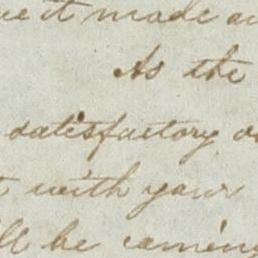 it made
As the
satisfactory
with your
be coming